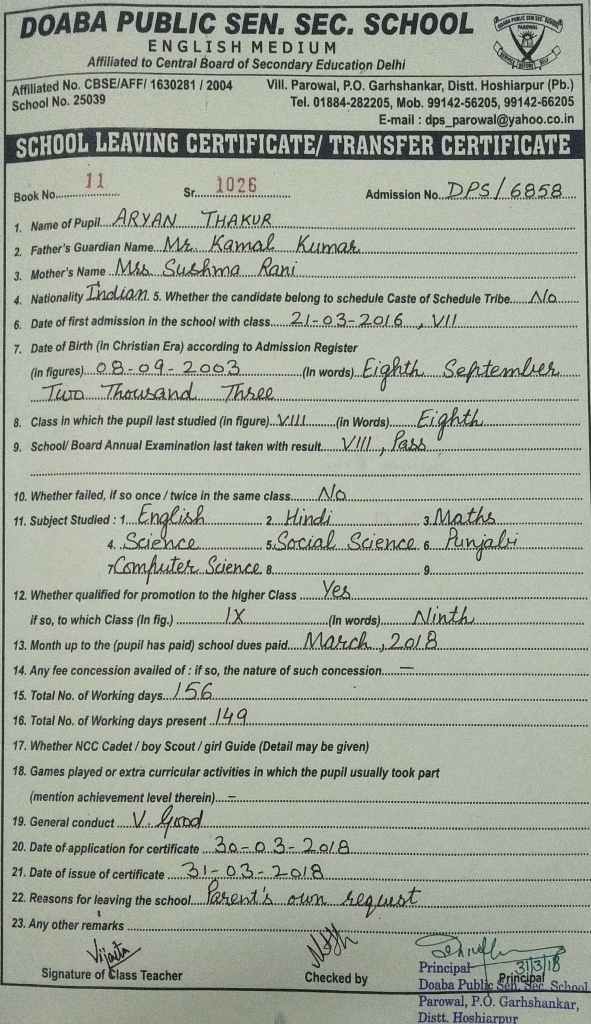 DOABA PUBLIC SEN. SEC. SCHOOL
ENGLISH MEDIUM
Affiliated to Central Board of Secondary Education Delhi
Affiliated No. CBSE/AFF/ 1630281 / 2004
Vill. Parowal, P.O. Garhshankar, Distt. Hoshiarpur (Pb.)
School No. 25039
Tel. 01884-282205, Mob. 99142-56205, 99142-66205
E-mail : dps_parowal@yahoo.co.in
SCHOOL LEAVING CERTIFICATE/ TRANSFER CERTIFICATE
Book No. 11 Sr. 1026 Admission No. DPS/6858
1. Name of Pupil ARYAN THAKUR
2. Father's Guardian Name Mr. Kamal Kumar
3. Mother's Name Mrs Sushma Rani
4. Nationality Indian. 5. Whether the candidate belong to schedule Caste of Schedule Tribe No
6. Date of first admission in the school with class 21-03-2016, VII
7. Date of Birth (in Christian Era) according to Admission Register
(in figures) 08-09-2003 (In words) Eighth September
Two Thousand Three
8. Class in which the pupil last studied (in figure) VIII (in Words) Eighth
9. School/ Board Annual Examination last taken with result VIII, Pass
10. Whether failed, if so once / twice in the same class No
11. Subject Studied : 1. English 2. Hindi 3. Maths
4. Science 5. Social Science 6. Punjabi
7. Computer Science 8. 9.
12. Whether qualified for promotion to the higher Class Yes
if so, to which Class (In fig.) IX (In words) Ninth
13. Month up to the (pupil has paid) school dues paid March, 2018
14. Any fee concession availed of : if so, the nature of such concession —
15. Total No. of Working days 156
16. Total No. of Working days present 149
17. Whether NCC Cadet / boy Scout / girl Guide (Detail may be given)
18. Games played or extra curricular activities in which the pupil usually took part
(mention achievement level therein) –
19. General conduct V. Good
20. Date of application for certificate 30-03-2018
21. Date of issue of certificate 31-03-2018
22. Reasons for leaving the school Parent's own request
23. Any other remarks
Vijeta
31/3/18
Signature of Class Teacher Checked by Principal
Principal
Doaba Public Sen. Sec. School
Parowal, P.O. Garhshankar,
Distt. Hoshiarpur